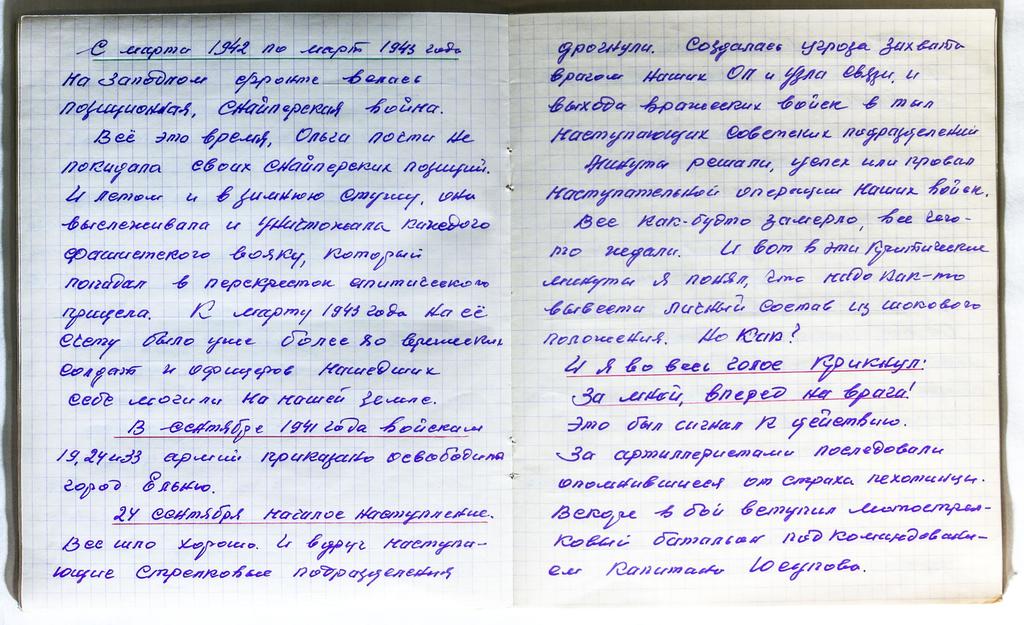 С марта 1942 по март 1943 года
на западном фронте велась
позиционная, снайперская война.
Всё это время, Ольга почти не
покидала своих снайперских позиций.
И летом и в зимнюю стужу, она
выслеживала и уничтожала каждого
фашистского вояку, который
попадал в перекресток оптического
прицела. К марту 1943 года на её
счету было уже более вражеских
солдат и офицеров нашедших
себе могилы на нашей земле.
В сентябре 1941 года войскам
19, 24 и 33 армий приказано освободить
город Ельню.
24 сентября началось наступление.
Все шло хорошо. И вдруг наступа-
ющие стрелковые подразделения
дрогнули. Создалась угроза захвата
врагом наших ОП и узла связи, и
выхода вражеских войск в тыл
наступающих советских подразделений
Минуты решали, успех или провал
наступательной операции наших войск.
Все как-будто замерло, все чего-
то ждали. И вот в эти критические
минуты я понял, что надо как-то
вывести личный состав из шокового
положения. Но как?
И я во весь голос крикнул:
За мной, вперед на врага!
Это был сигнал к действию.
За артиллеристами последовали
опомнившиеся от страха пехотинцы.
Вскоре в бой вступил мотострел-
ковый батальон под командовани-
ем капитана Юсупова.